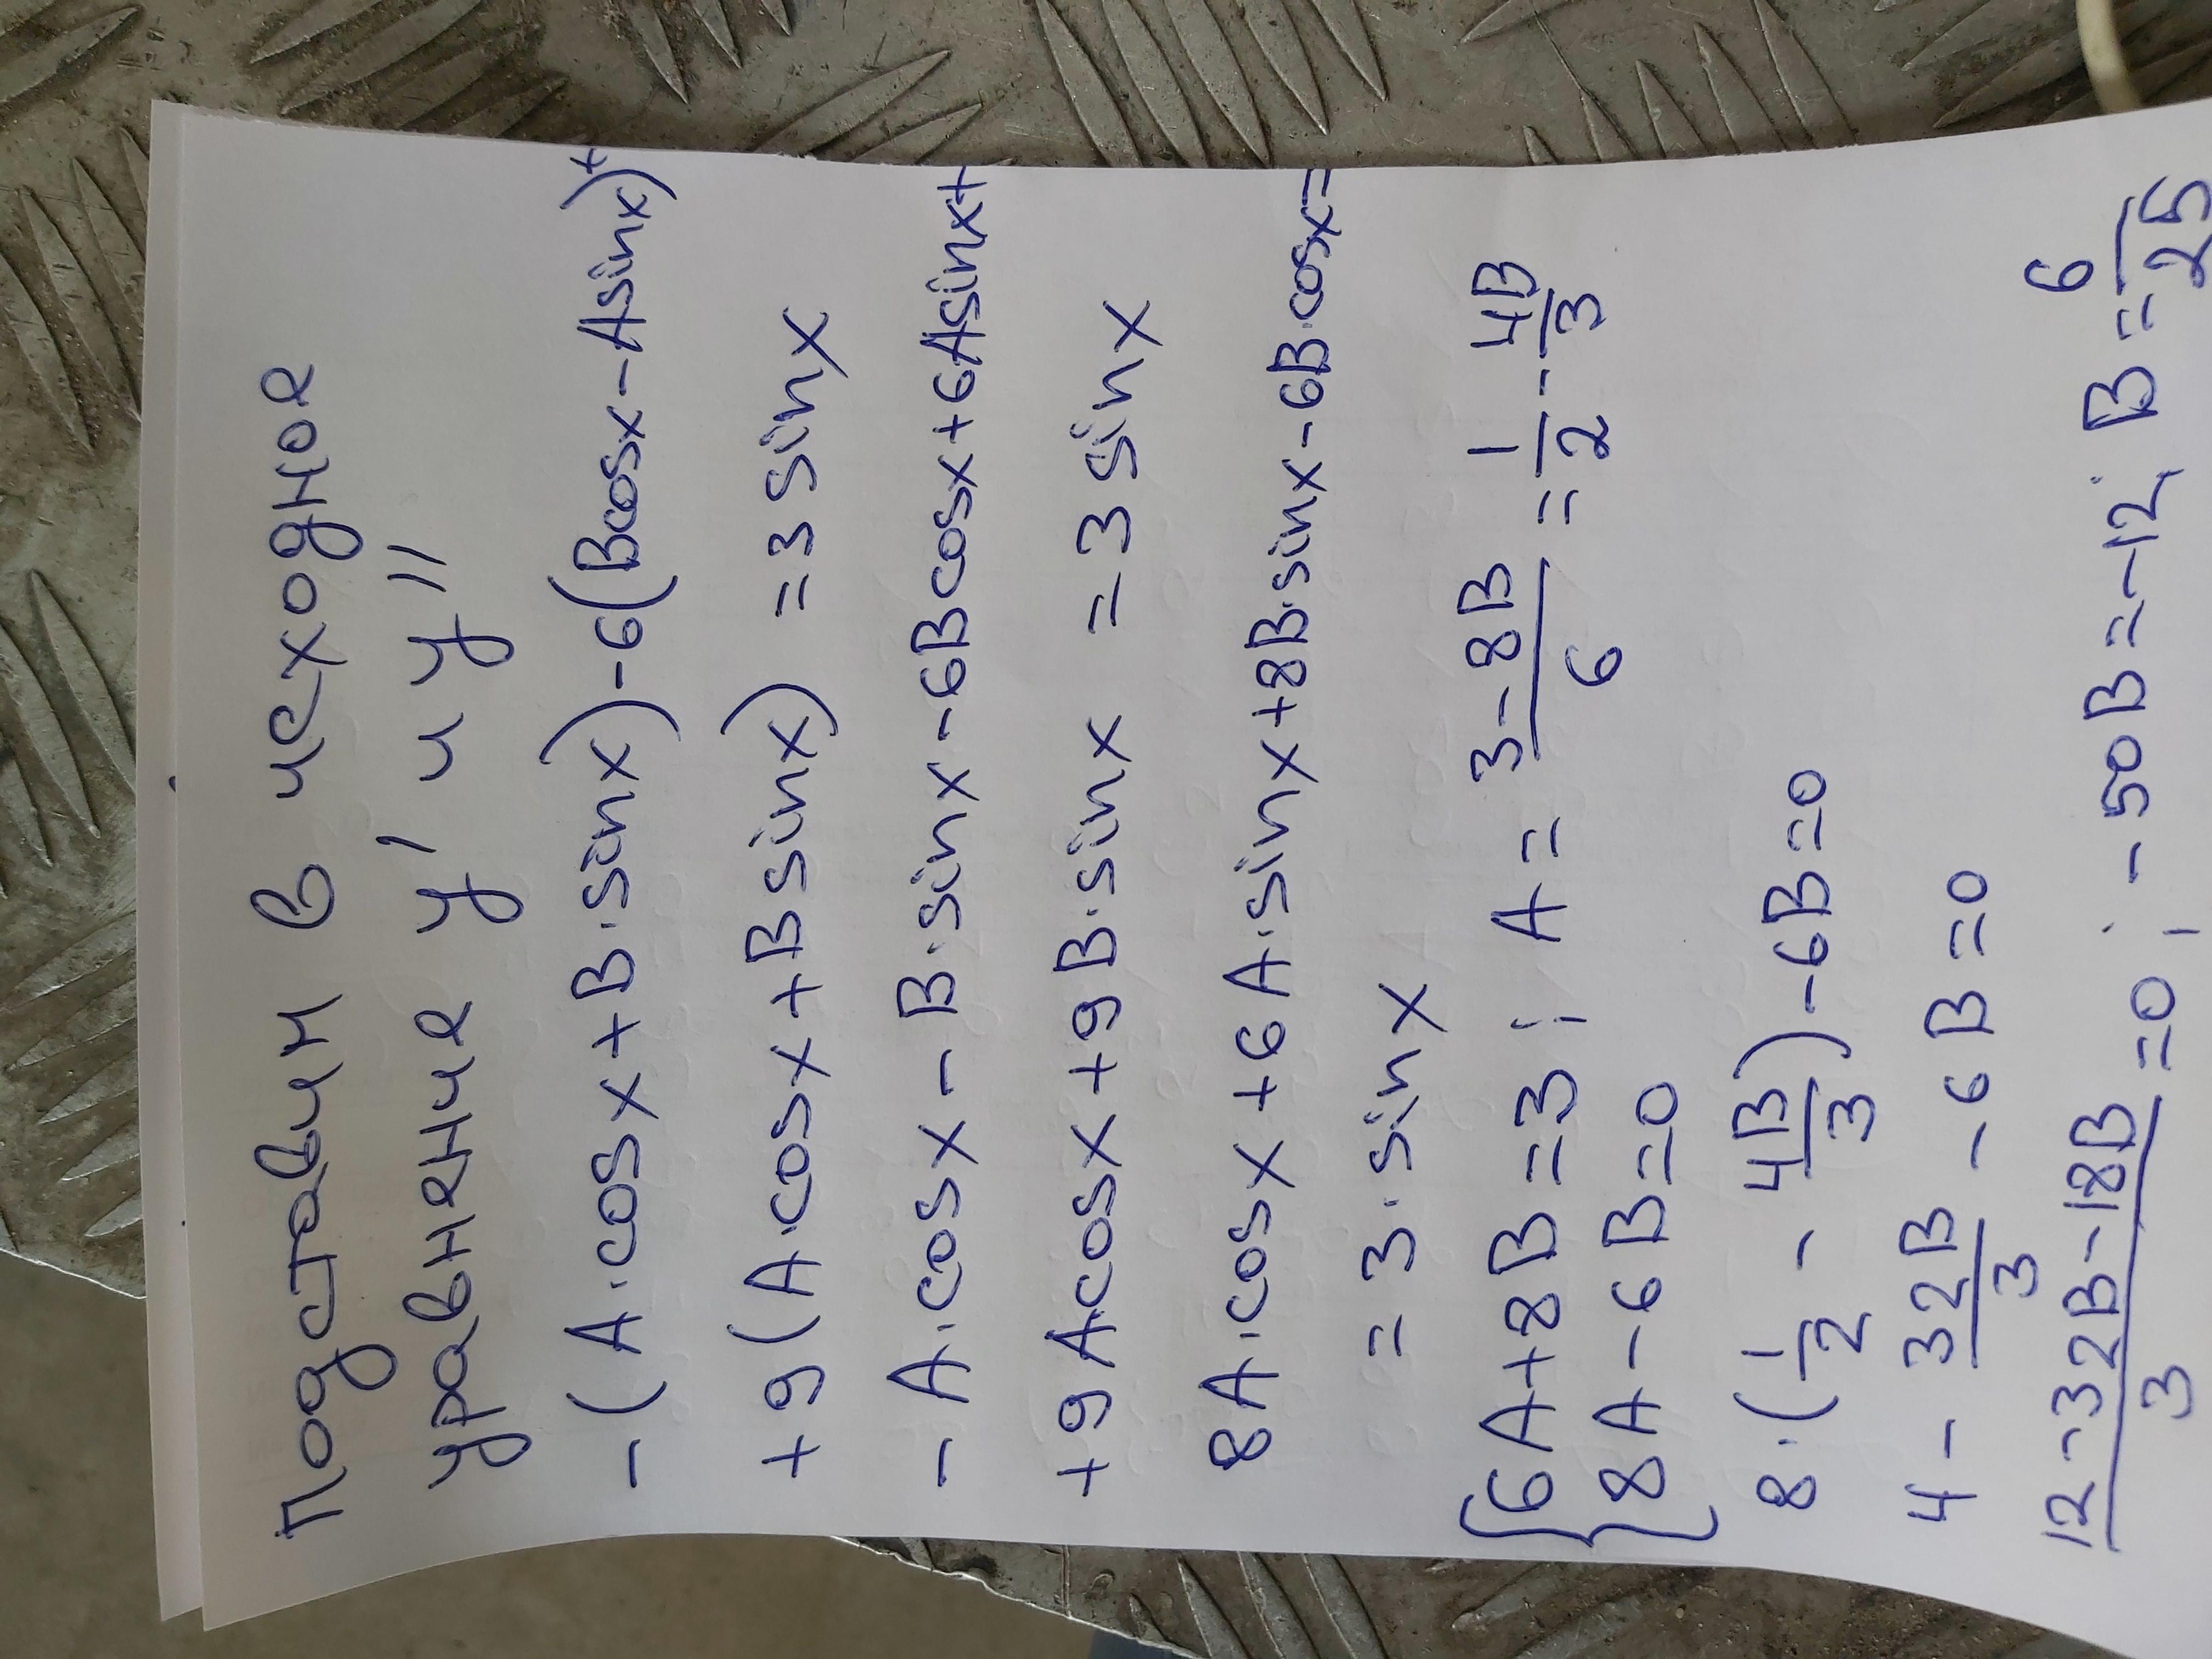 Подставим в исходное
уравнение y' и y''
-(A·cosx+B·sinx)-6(Bcosx-Asinx)+
+9(A·cosx+Bsinx) =3sinx
-A·cosx-B·sinx-6Bcosx+6Asinx+
+9Acosx+9B·sinx =3sinx
8A·cosx+6A·sinx+8B·sinx-6B·cosx=
=3·sinx
{6A+8B=3; A=\frac{3-8B}{6}=\frac{1}{2}-\frac{4B}{3}
{8A-6B=0
8·(\frac{1}{2}-\frac{4B}{3})-6B=0
4-\frac{32B}{3}-6B=0
\frac{12-32B-18B}{3}=0; -50B=-12; B=\frac{6}{25}